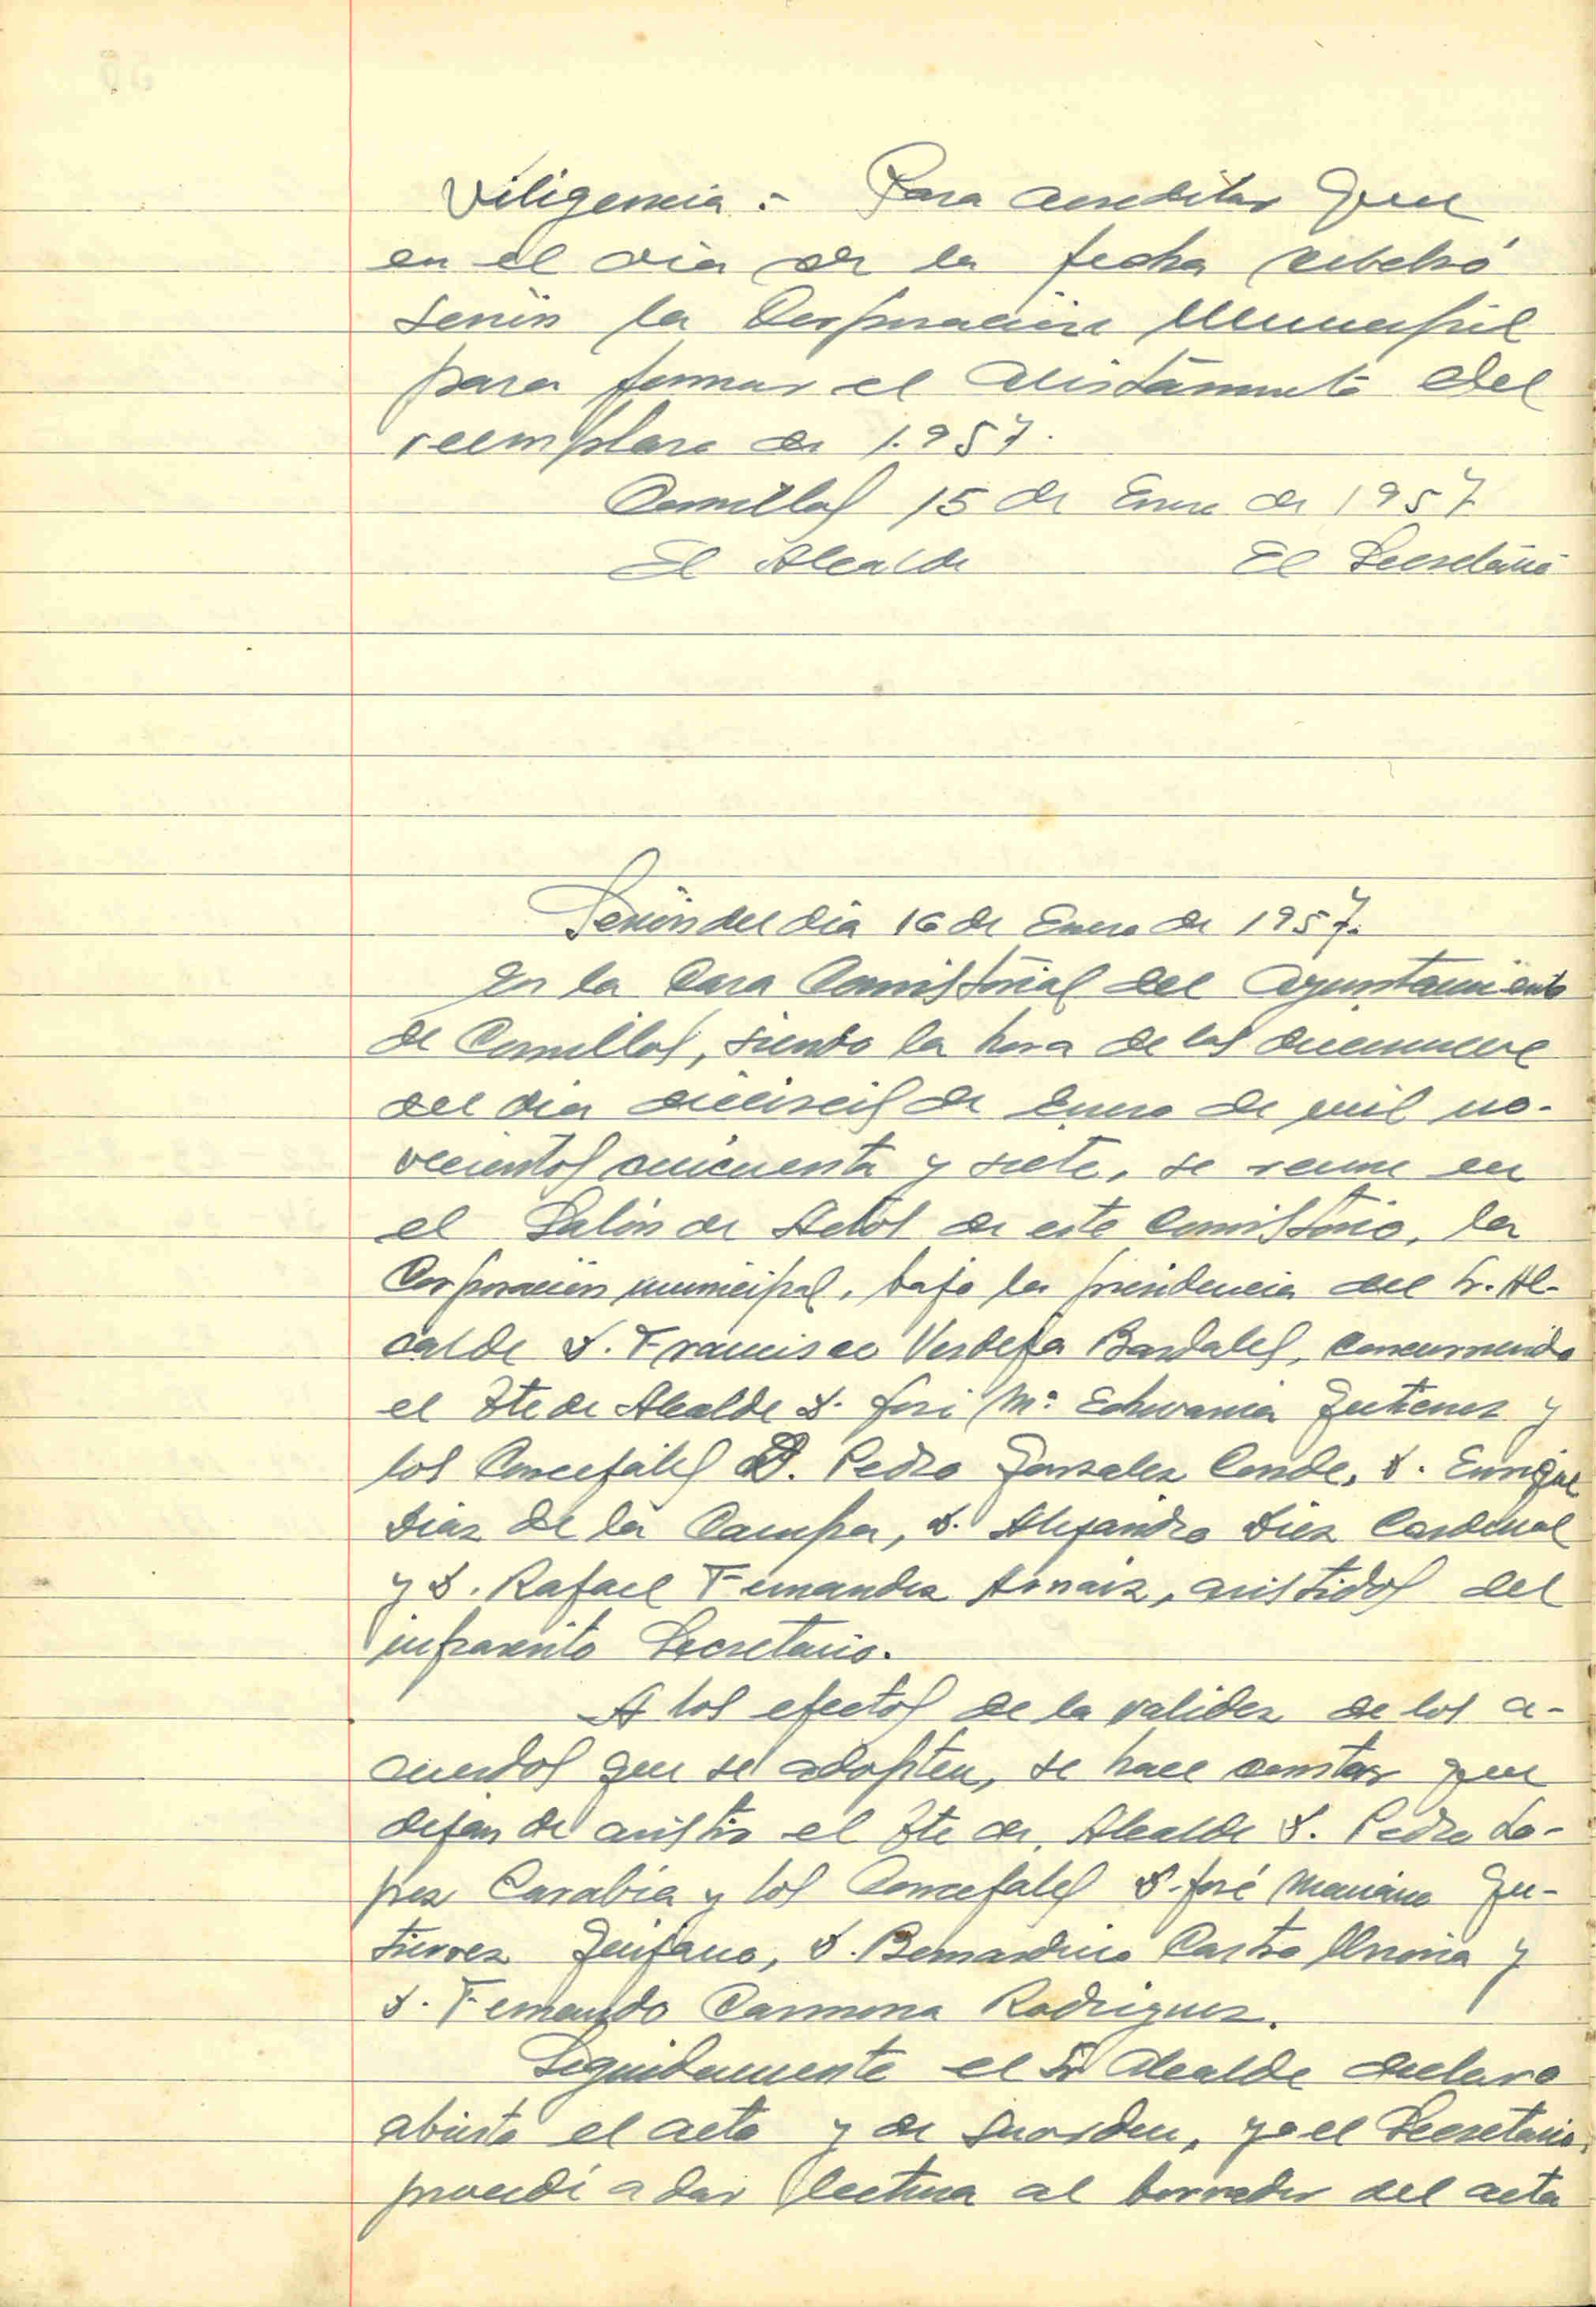 Diligencia :- Para acreditar que
en el día de la fecha celebró
sesión la Corporación Municipal
para formar el alistamiento del
reemplazo de 1.957.
Comillas 15 de Enero de 1957
El Alcalde El Secretario
Sesión del día 16 de Enero de 1957.
En la Casa Consistorial del Ayuntamiento
de Comillas, siendo la hora de las diecinueve
del día dieciseis de Enero de mil no-
vecientos cincuenta y siete, se reune en
el Salón de Actos de este Consistorio, la
Corporación municipal, bajo la presidencia del Sr. Al-
calde D. Francisco Verdeja Bardales, concurriendo
el Tte de Alcalde D. José Mª Echevarria Gutierrez y
los Concejales D. Pedro Gonzalez Conde, D. Enrique
Diaz de la Campa, D. Alejandro Diez Cardenal
y D. Rafael Fernandez Arnaiz, asistidos del
infrascrito Secretario.
A los efectos de la validez de los a-
cuerdos que se adopten, se hace constar que
dejan de asistir el Tte de Alcalde D. Pedro Lo-
pez Carabia y los Concejales D. José Mariano Gu-
tierrez Quijano, D. Bernardino Castro y
D. Fernando Carmona Rodriguez.
Seguidamente el Sr Alcalde declara
abierto el acto y de su orden, yo el Secretario,
procedí a dar lectura al borrador del acta